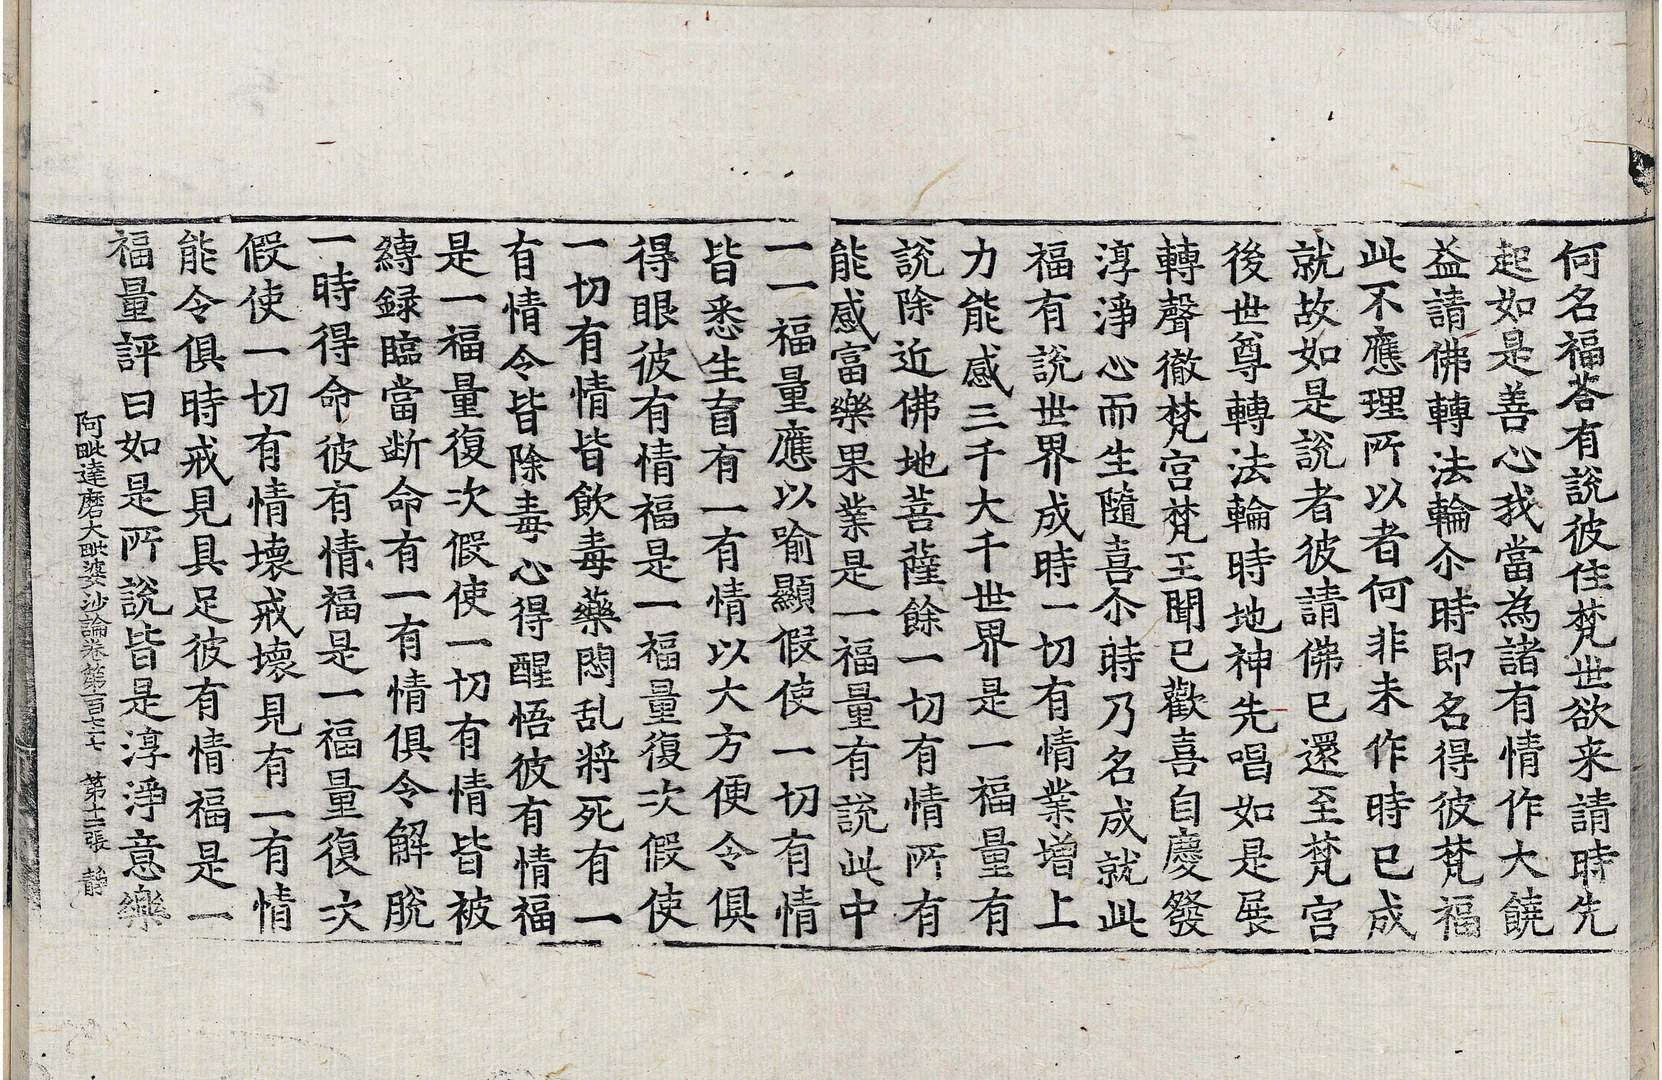 何名福荅有說彼住梵世欲来請時先
起如是善心我當為諸有情作大饒
益請佛轉法輪尒時即名得彼梵福
此不應理所以者何非未作時已成
就故如是說者彼請佛已還至梵宫
後世尊轉法輪時地神先唱如是展
轉聲徹梵宫梵王聞已歡喜自慶發
淳淨心而生隨喜尒時乃名成就此
福有說世界成時一切有情業增上
力能感三千大千世界是一福量有
說除近佛地菩薩餘一切有情所有
能感富樂果業是一福量有說此中
一一福量應以喻顯假使一切有情
皆悉生盲有一有情以大方便令俱
得眼彼有情福是一福量復次假使
一切有情皆飲毒藥悶乱將死有一
有情令皆除毒心得醒悟彼有情福
是一福量復次假使一切有情皆被
縛録臨當断命有一有情俱令解脫
一時得命彼有情福是一福量復次
假使一切有情壞戒壞見有一有情
能令俱時戒見具足彼有情福是一
福量評曰如是所說皆是淳淨意樂
阿毗達磨大毗婆沙論卷第一百七十七 第十二張 静